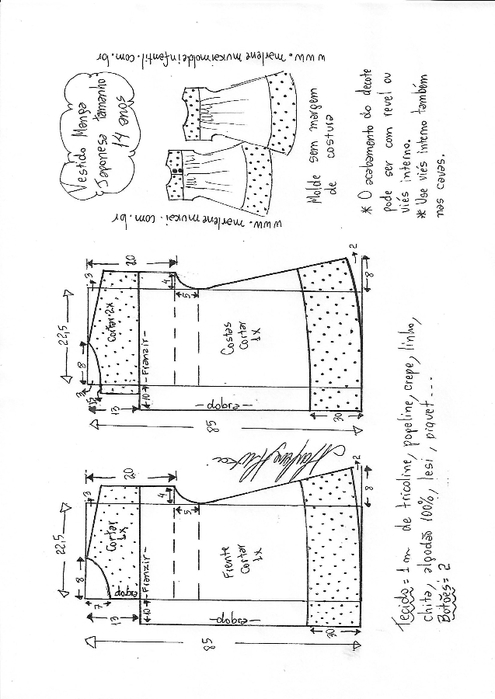 www.marlenemukaimoldeinfantil.com.br
Vestido Manga
Japonesa tamanho
14 anos
www.marlenemukai.com.br
Molde sem margem
de costura
* O acabamento do decote
pode ser com revel ou
viés interno.
* Use viés interno também
nas cavas.
22,5
8
3
20
3
Cortar 2x
4
5
13
10
-Franzir-
-dobra-
Costas
Cortar
1x
85
20
2
8
22,5
8
7
20
3
Cortar
1x
dobra
4
5
13
10
-Franzir-
-dobra-
Frente
Cortar
1x
85
20
2
8
Tecido = 1 m de tricoline, popeline, crepe, linho,
chita, algodão 100%, lesi, piquet...
Botões = 2